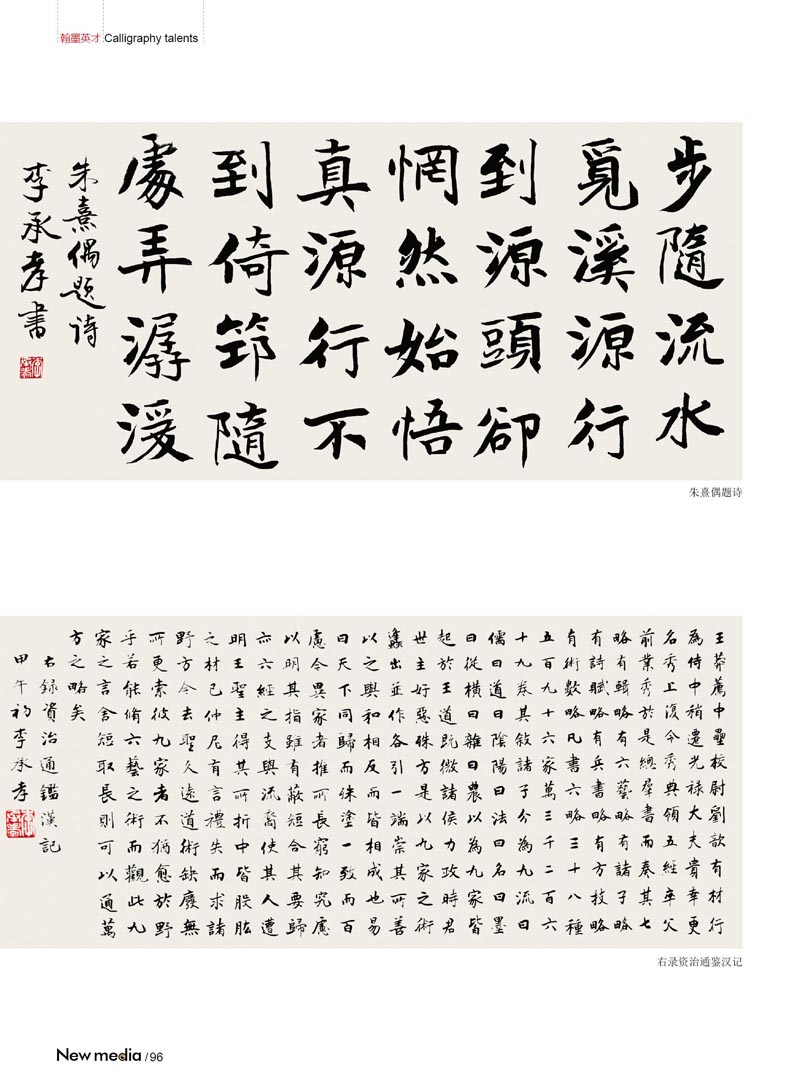 翰墨英才 Calligraphy talents
步隨流水
覓溪源行
到源頭卻
惘然始悟
真源行不
到倚筇隨
處弄潺湲
朱熹偶题诗
李承孝書
朱熹偶题诗
王莽薦中壘校尉劉歆有材行
為侍中稍遷光禄大夫貴幸更
名秀上復令秀典領五經卒父
前業秀於是總羣書而奏其七
略有輯略有六藝略有諸子略
有詩賦略有兵書略有方技略
有術數略凡書六略三十八種
五百九十六家萬三千二百六
十九卷其敘諸子分為九流曰
儒曰道曰陰陽曰法曰名曰墨
曰從橫曰雜曰農以為九家皆
起於王道既微諸侯力政時君
世主好惡殊方是以九家之術
蠭出並作各引一端崇其所善
以之與和相反而皆相成也易
曰天下同歸而殊塗一致而百
慮今異家者推所長窮知究慮
以明其指雖有蔽短合其要歸
亦六經之支與流裔使其人遭
明王聖主得其所折中皆股肱
之材已仲尼有言禮失而求諸
野方今去聖久遠道術缺廢無
所更索彼九家者不猶愈於野
乎若能脩六藝之術而觀此九
家之言舍短取長則可以通萬
方之略矣
右録資治通鑑漢記
甲午初李承孝
右录资治通鉴汉记
New media / 96